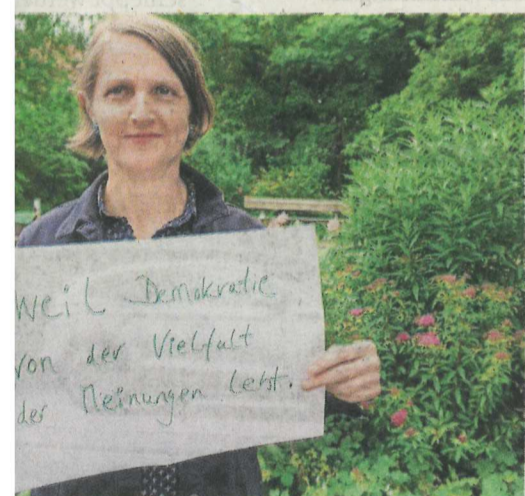 Weil Demokratie
von der Vielfalt
der Meinungen lebt.